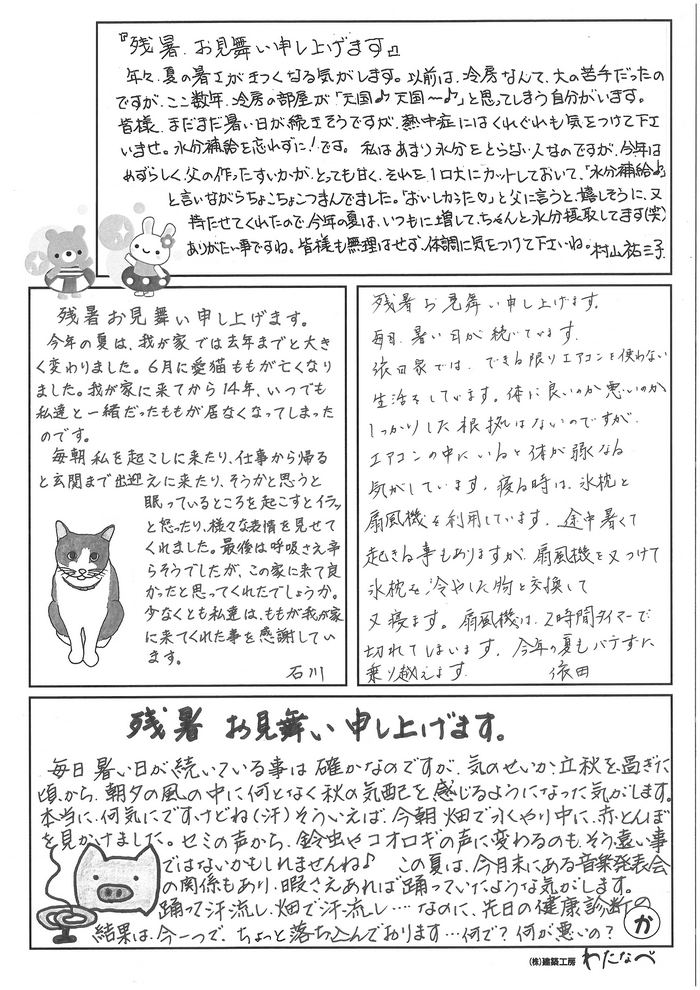 『残暑、お見舞い申し上げます』
年々、夏の暑さがきつくなる気がします。以前は、冷房なんて、大の苦手だったの
ですが、ここ数年、冷房の部屋が「天国♪天国〜♪」と思ってしまう自分がいます。
皆様、まだまだ暑い日が続きそうですが、熱中症にはくれぐれも気をつけて下さ
いませ。水分補給を忘れずに!です。私はあまり水分をとらない人なのですが、今年は
めずらしく父の作ったすいかが、とっても甘く、それを、1口大にカットしておいて、「水分補給♪」
と言いながらちょこちょこつまんでました。「おいしかった♡」と父に言うと、嬉しそうに、又
持たせてくれたので今年の夏は、いつもに増して、ちゃんと水分摂取してます(笑)
ありがたい事ですね。皆様も無理はせず、体調に気をつけて下さいね。村山祐三子
残暑お見舞い申し上げます。
今年の夏は、我が家では去年までと大き
く変わりました。6月に愛猫ももが亡くなり
ました。我が家に来てから14年、いつでも
私達と一緒だったももが居なくなってしまった
のです。
毎朝私を起こしに来たり、仕事から帰る
と玄関まで出迎えに来たり、そうかと思うと
眠っているところを起こすとイラッ
と怒ったり、様々な表情を見せて
くれました。最後は呼吸さえ辛
らそうでしたが、この家に来て良
かったと思ってくれたでしょうか。
少なくとも私達は、ももが我が家
に来てくれた事を感謝してい
ます。
石川
残暑お見舞い申し上げます。
毎日、暑い日が続いています。
依田家では、できる限りエアコンを使わない
生活をしています。体に良いのか悪いのか
しっかりした根拠はないのですが、
エアコンの中にいると体が弱くなる
気がしています。寝る時は、氷枕と
扇風機を利用しています。途中暑くて
起きる事もありますが、扇風機を又つけて
氷枕を冷やした物と交換して
又寝ます。扇風機は、2時間タイマーで
切れてしまいます。今年の夏もバテずに
乗り越えます。 依田
残暑 お見舞い申し上げます。
毎日暑い日が続いている事は確かなのですが、気のせいか、立秋を過ぎた
頃から、朝夕の風の中に何となく秋の気配を感じるようになった気がします。
本当に、何気にですけどね(汗)そういえば、今朝畑で水くやり中に、赤とんぼ
を見かけました。セミの声から、鈴虫やコオロギの声に変わるのも、そう遠い事
ではないかもしれませんね♪ この夏は、今月末にある音楽発表会
の関係もあり、暇さえあれば踊っていたような気がします。
踊って汗流し、畑で汗流し…‥なのに、先日の健康診断の
結果は、今一つで、ちょっと落ち込んでおります…何で?何が悪いの?
か
(株)建築工房 わたなべ